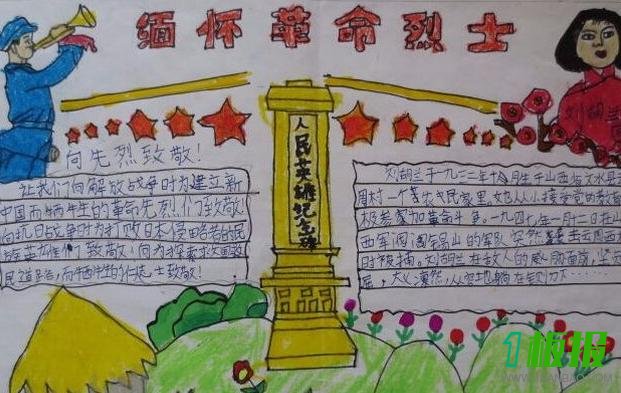 缅怀革命烈士
刘胡兰
人民英雄纪念碑
向先烈致敬！
让我们向解放战争时为建立新
中国而牺牲的革命先烈们致敬！
向抗日战争时为打败日本侵略者的民
族英雄们致敬！
民 而牺牲的 士致敬！
刘胡兰于一九三二年十月生于山西省文水县云
周村一个 农民家里。她从小接受
极参加革命斗争。一九四七年一月十二日在山
西军阀阎锡山的军队突然 云周西
时被捕。刘胡兰在敌人的威胁面前，坚
屈，大义凛然，从容地躺在铡刀下……
1板报
WWW.1BANBAO.COM